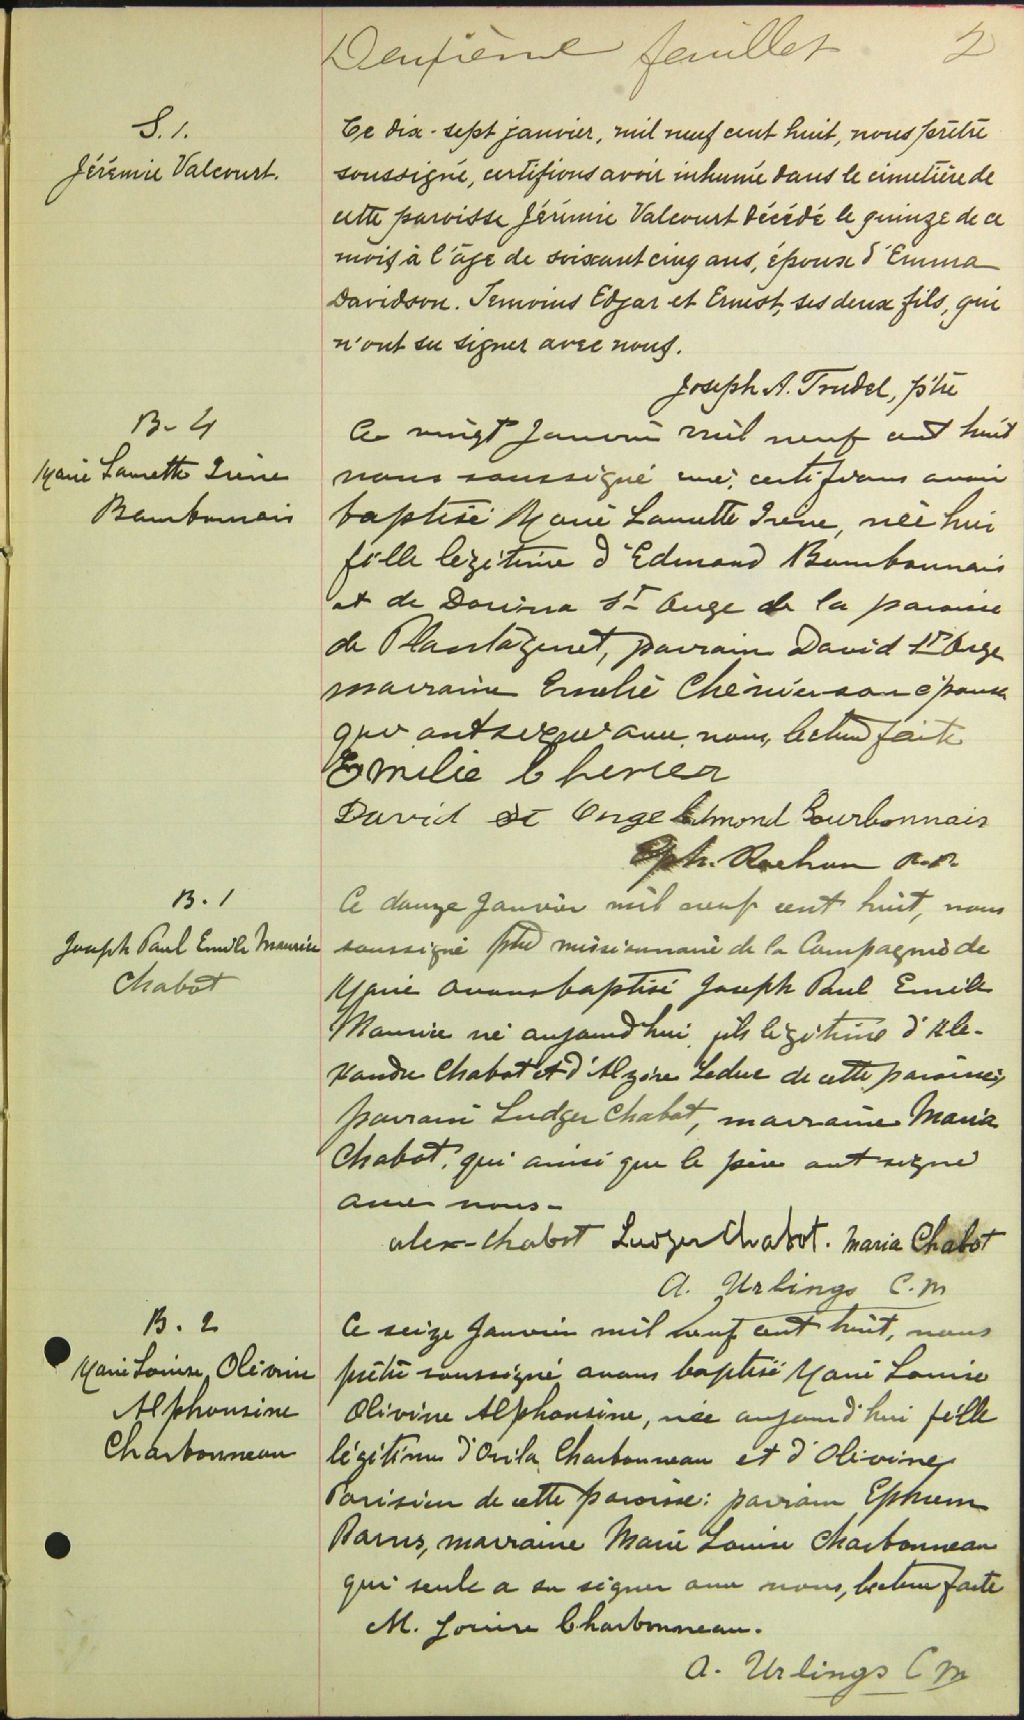 Deuxième feuillet 2
S. 1.
Jérémie Valcourt.
Ce dix-sept janvier, mil neuf cent huit, nous prêtre
soussigné, certifions avoir inhumé dans le cimetière de
cette paroisse Jérémie Valcourt décédé le quinze de ce
mois à l'âge de soixant cinq ans, époux d'Emma
Davidson. Temoins Edgar et Ernest, ses deux fils, qui
n'ont su signer avec nous.
Joseph A. Trudel, ptre
B- 4
Marie Laurette Irène
Bourbonnais
Ce vingt Janvier mil neuf cent huit
nous soussigné curé, certifions avoir
baptisé Marie Laurette Irene, née hui
fille legitime d'Edmond Bourbonnais
et de Dorina St Onge de la paroisse
de Plantagenet, parrain David St Onge
marraine Emelie Chénier son épouse
qui ont signer avec nous, lecture faite
Emilie Chenier
David St Onge Edmond Bourbonnais
Oph. Rochon
B. 1
Joseph Paul Emile Maurice
Chabot
Ce douze Janvier mil neuf cent huit, nous
soussigné ptre missionnaire de la Compagnie de
Marie avons baptisé Joseph Paul Emile
Maurice né aujourd'hui, fils légitime d'Ale-
xandre Chabot et d'Alzire Leduc de cette paroisse,
parrain Ludger Chabot, marraine Maria
Chabot, qui ainsi que le père ont signé
avec nous-
alex-Chabot Ludger Chabot. Maria Chabot
A. Urlings C. M
B. 2
Marie Louise Olivine
Alphonsine
Charbonneau
Ce seize Janvier mil neuf cent huit, nous
prêtre soussigné avons baptisé Marie Louise
Olivine Alphonsine, née aujourd'hui fille
légitime d'Ovila Charbonneau et d'Olivine
Parisien de cette paroisse: parrain Ephrem
marraine Marie Louise Charbonneau
qui seule a su signer avec nous, lecture faite
M. Louise Charbonneau.
A. Urlings C M